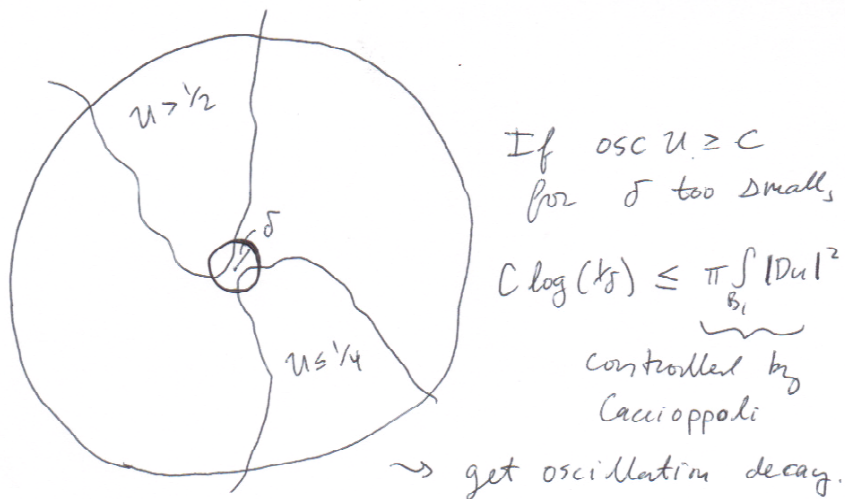 u > 1/2
δ
u ≤ 1/4
If osc u ≥ C
for δ too small,
C log(1/δ) ≤ π∫_{B_1} |Du|²
controlled by
Caccioppoli
⇝ get oscillation decay.